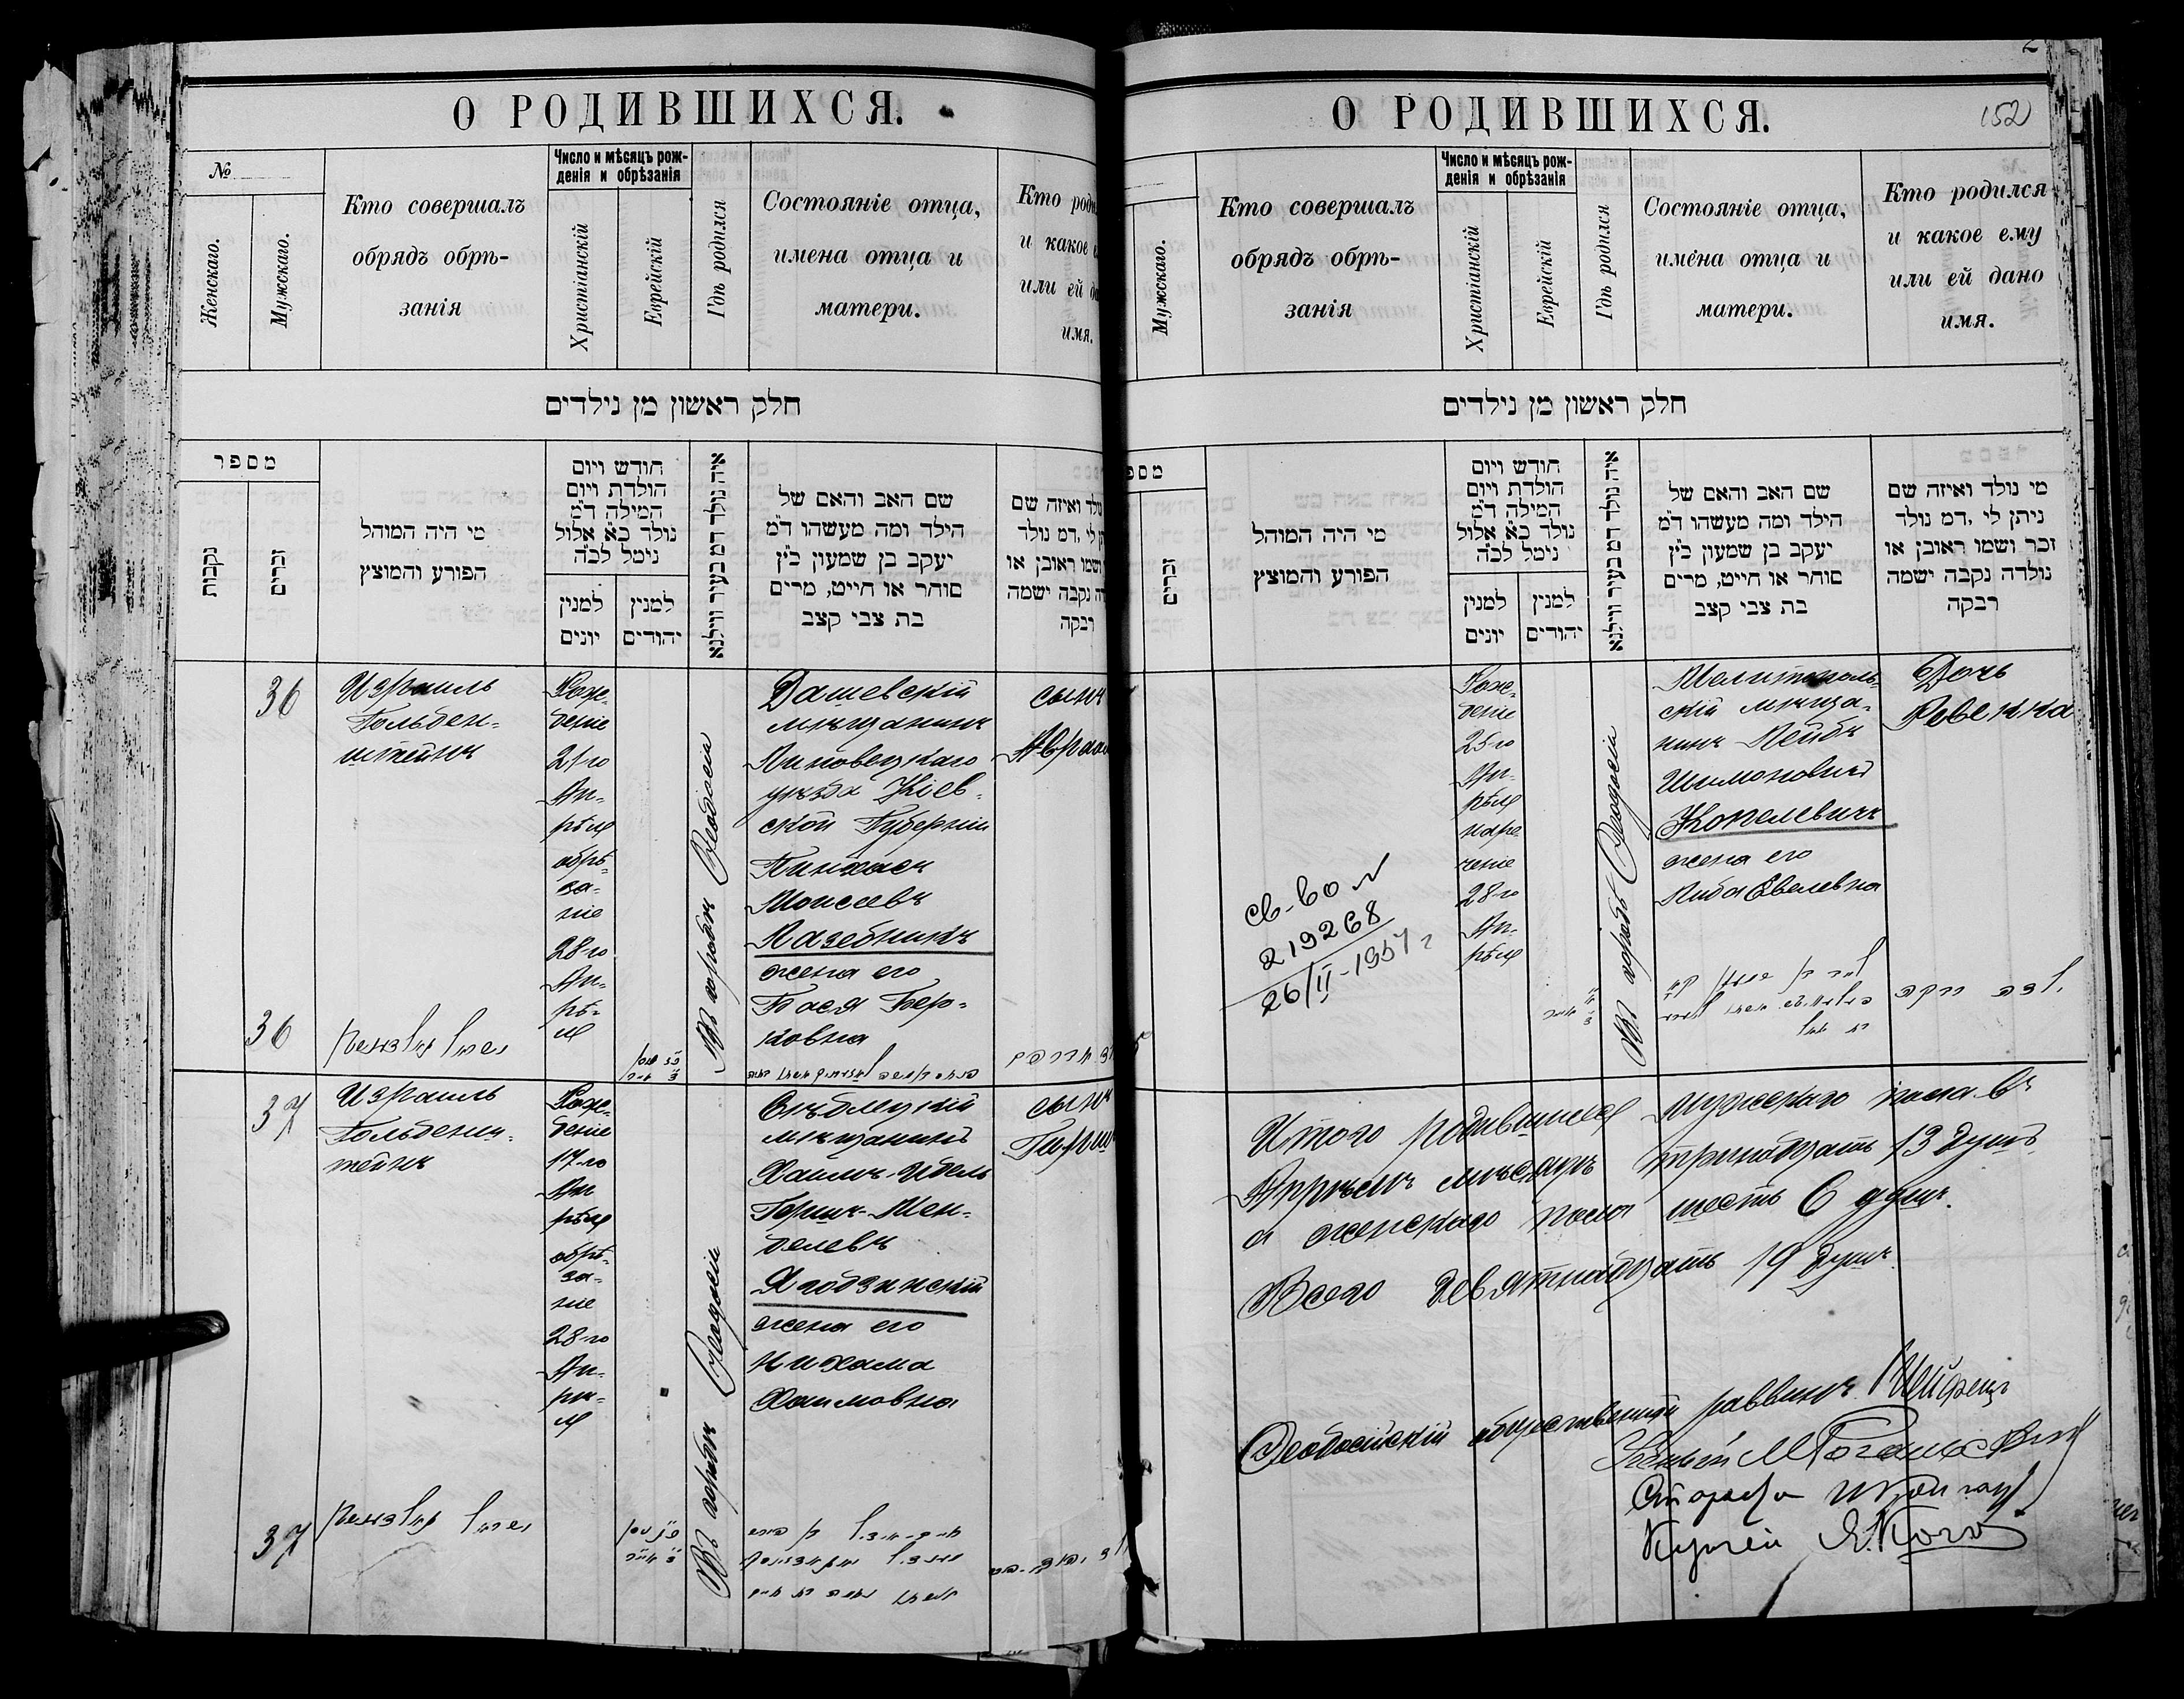 О РОДИВШИХСЯ.
№
Женскаго.
Мужскаго.
Кто совершалъ
обрядъ обрѣ-
занія
Число и мѣсяцъ рож-
денія и обрѣзанія
Христіанскій
Еврейскій
Гдѣ родился
Состояніе отца,
имена отца и
матери.
Кто роди
и какое е
или ей да
имя.
חלק ראשון מן נילדים
מספר
נקבות
זכרים
מי היה המוהל
הפורע והמוצץ
חודש ויום
הולדת ויום
המילה ד״מ
נולד בא אלול
נימל לכ״ה
למנין
יונים
למנין
יהודים
איה נולד דמ בעיר ווילנא
שם האב והאם של
הילד ומה מעשהו ד״מ
יעקב בן שמעון כ״ץ
סוחר או חייט, מרים
בת צבי קצב
ולד ואיזה שם
תן לי ,דמ נולד
ושמו ראובן או
ה נקבה ישמה
רבקה
36
Израиль
Гольден-
штейнъ
Рож-
деніе
21-го
Ап-
рѣля
обрѣ-
за-
ніе
28-го
Ап-
рѣ-
ля
Въ городѣ Ѳеодосіи
Дашевскій
мѣщанинъ
Липовецкаго
уѣзда Кіев-
ской Губерніи
Пинхасъ
Моисеевъ
Лазебникъ
жена его
Бася Бер-
ковна
сынъ
Авраам
36
ישראל גאלדענשטיין
37
Израиль
Гольденш-
тейнъ
Рож-
деніе
17-го
Ап
рѣля
обрѣ-
за-
ніе
28-го
Ап-
рѣ-
ля
Въ городѣ Ѳеодосіи
мѣщанинъ
Хаимъ-Идель
Гершъ-Мен-
делевъ
Ягодзинскій
жена его
Нихама
Хаимовна
сынъ
Гирш
37
ישראל גאלדענשטיין
О РОДИВШИХСЯ.
152
Мужскаго.
Кто совершалъ
обрядъ обрѣ-
занія
Число и мѣсяцъ рож-
денія и обрѣзанія
Христіанскій
Еврейскій
Гдѣ родился
Состояніе отца,
имена отца и
матери.
Кто родился
и какое ему
или ей дано
имя.
חלק ראשון מן נילדים
מספ
זכרים
מי היה המוהל
הפורע והמוצץ
חודש ויום
הולדת ויום
המילה ד״מ
נולד בא אלול
נימל לכ״ה
למנין
יונים
למנין
יהודים
איה נולד דמ בעיר ווילנא
שם האב והאם של
הילד ומה מעשהו ד״מ
יעקב בן שמעון כ״ץ
סוחר או חייט, מרים
בת צבי קצב
מי נולד ואיזה שם
ניתן לי ,דמ נולד
זכר ושמו ראובן או
נולדה נקבה ישמה
רבקה
св-во №
219268
26/II-1957 г
Рож-
деніе
25-го
Ап-
рѣля
наре
ченіе
28-го
Ап-
рѣля
Въ городѣ Ѳеодосіи
Мелитополь-
скій мѣща-
нинъ Лейбъ
Шимоновичъ
Копелевичъ
жена его
Либа Евелевна
Дочь
Ревекка
Итого родившихся мужскаго пола въ
Апрѣлѣ мѣсяцѣ тринадцать 13 душъ
а женскаго пола шесть 6 душъ.
Всего девятнадцать 19 душъ.
Ѳеодосійскій общественный раввинъ
Ученый
Староста
Казначей Я. Коген